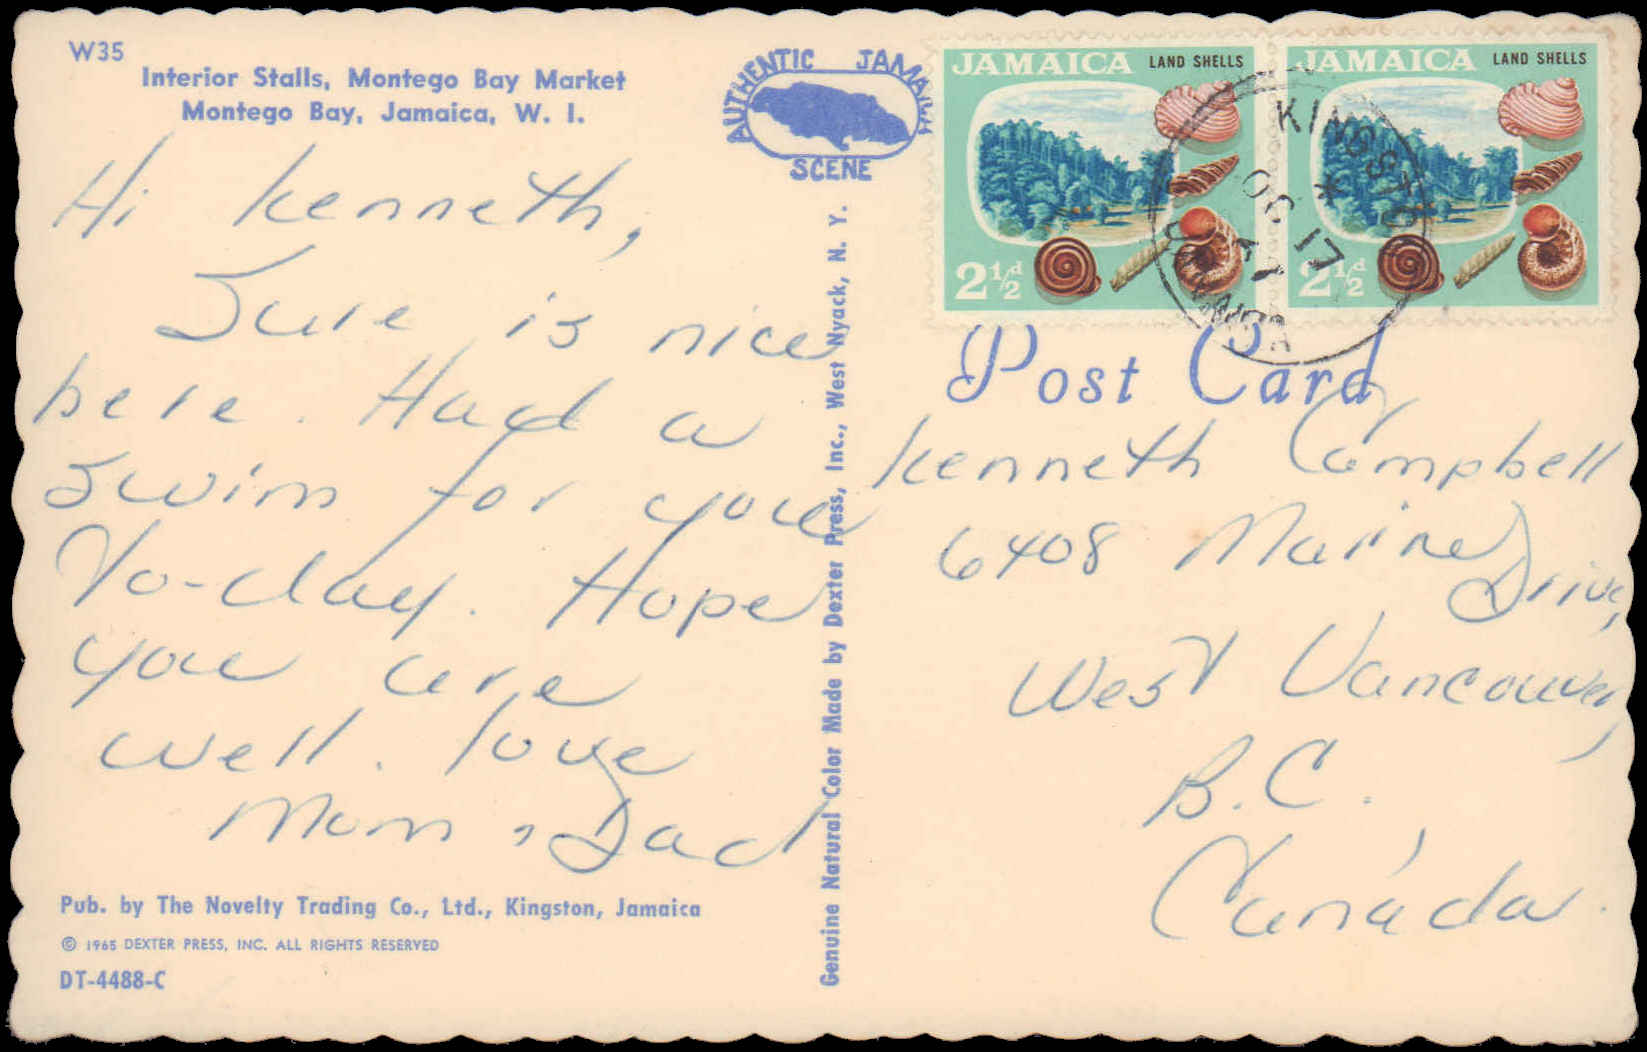 W35
Interior Stalls, Montego Bay Market
Montego Bay, Jamaica, W. I.
AUTHENTIC JAMAICA
SCENE
JAMAICA LAND SHELLS
2½d
JAMAICA LAND SHELLS
2½d
KINGSTON
JAMAICA
Post Card
Hi Kenneth,
Sure is nice
here. Had a
swim for you
To-day. Hope
you are
well. love
Mom, Dad
Pub. by The Novelty Trading Co., Ltd., Kingston, Jamaica
© 1965 DEXTER PRESS, INC. ALL RIGHTS RESERVED
DT-4488-C
Genuine Natural Color Made by Dexter Press, Inc., West Nyack, N. Y.
Kenneth Campbell
6408 Marine
Drive,
West Vancouver,
B.C.
Canada.